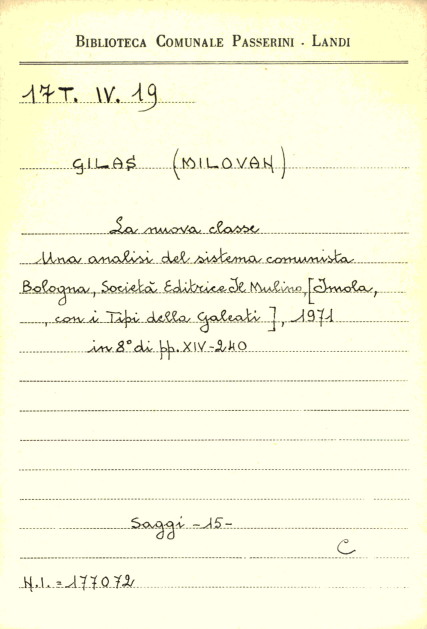 BIBLIOTECA COMUNALE PASSERINI - LANDI
17 T. IV. 19
GILAS (MILOVAN)
La nuova classe
Una analisi del sistema comunista
Bologna, Società Editrice Il Mulino, [Imola,
, con i Tipi della Galeati ], 1971
in 8° di pp. XIV-240
Saggi -15-
C
N.I. = 177072